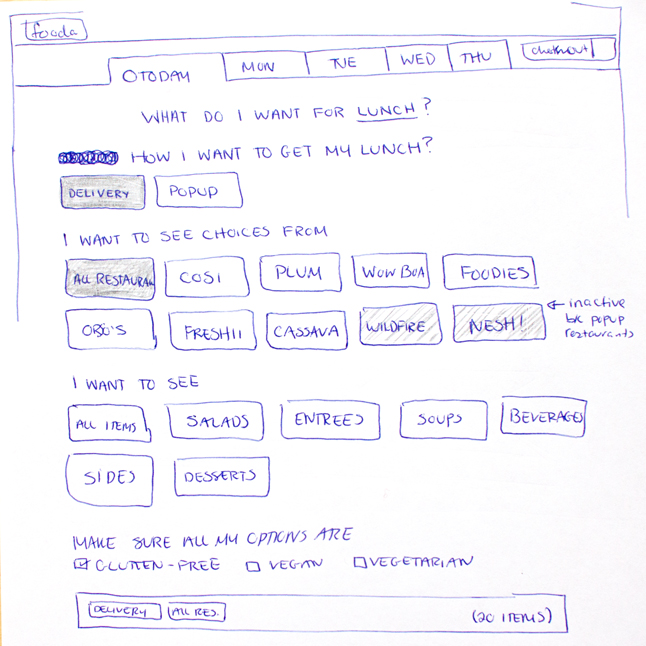 fooda
TODAY MON TUE WED THU checkout
WHAT DO I WANT FOR LUNCH?
HOW I WANT TO GET MY LUNCH?
DELIVERY POPUP
I WANT TO SEE CHOICES FROM
ALL RESTAURAN COSI PLUM WOW BOA FOODIES
FRESHII CASSAVA WILDFIRE NESH! ← inactive
b/c popup
restaurants
I WANT TO SEE
ALL ITEMS SALADS ENTREES SOUPS BEVERAGES
SIDES DESSERTS
MAKE SURE ALL MY OPTIONS ARE
GLUTTEN-FREE VEGAN VEGETARIAN
DELIVERY ALL RES. (20 ITEMS)